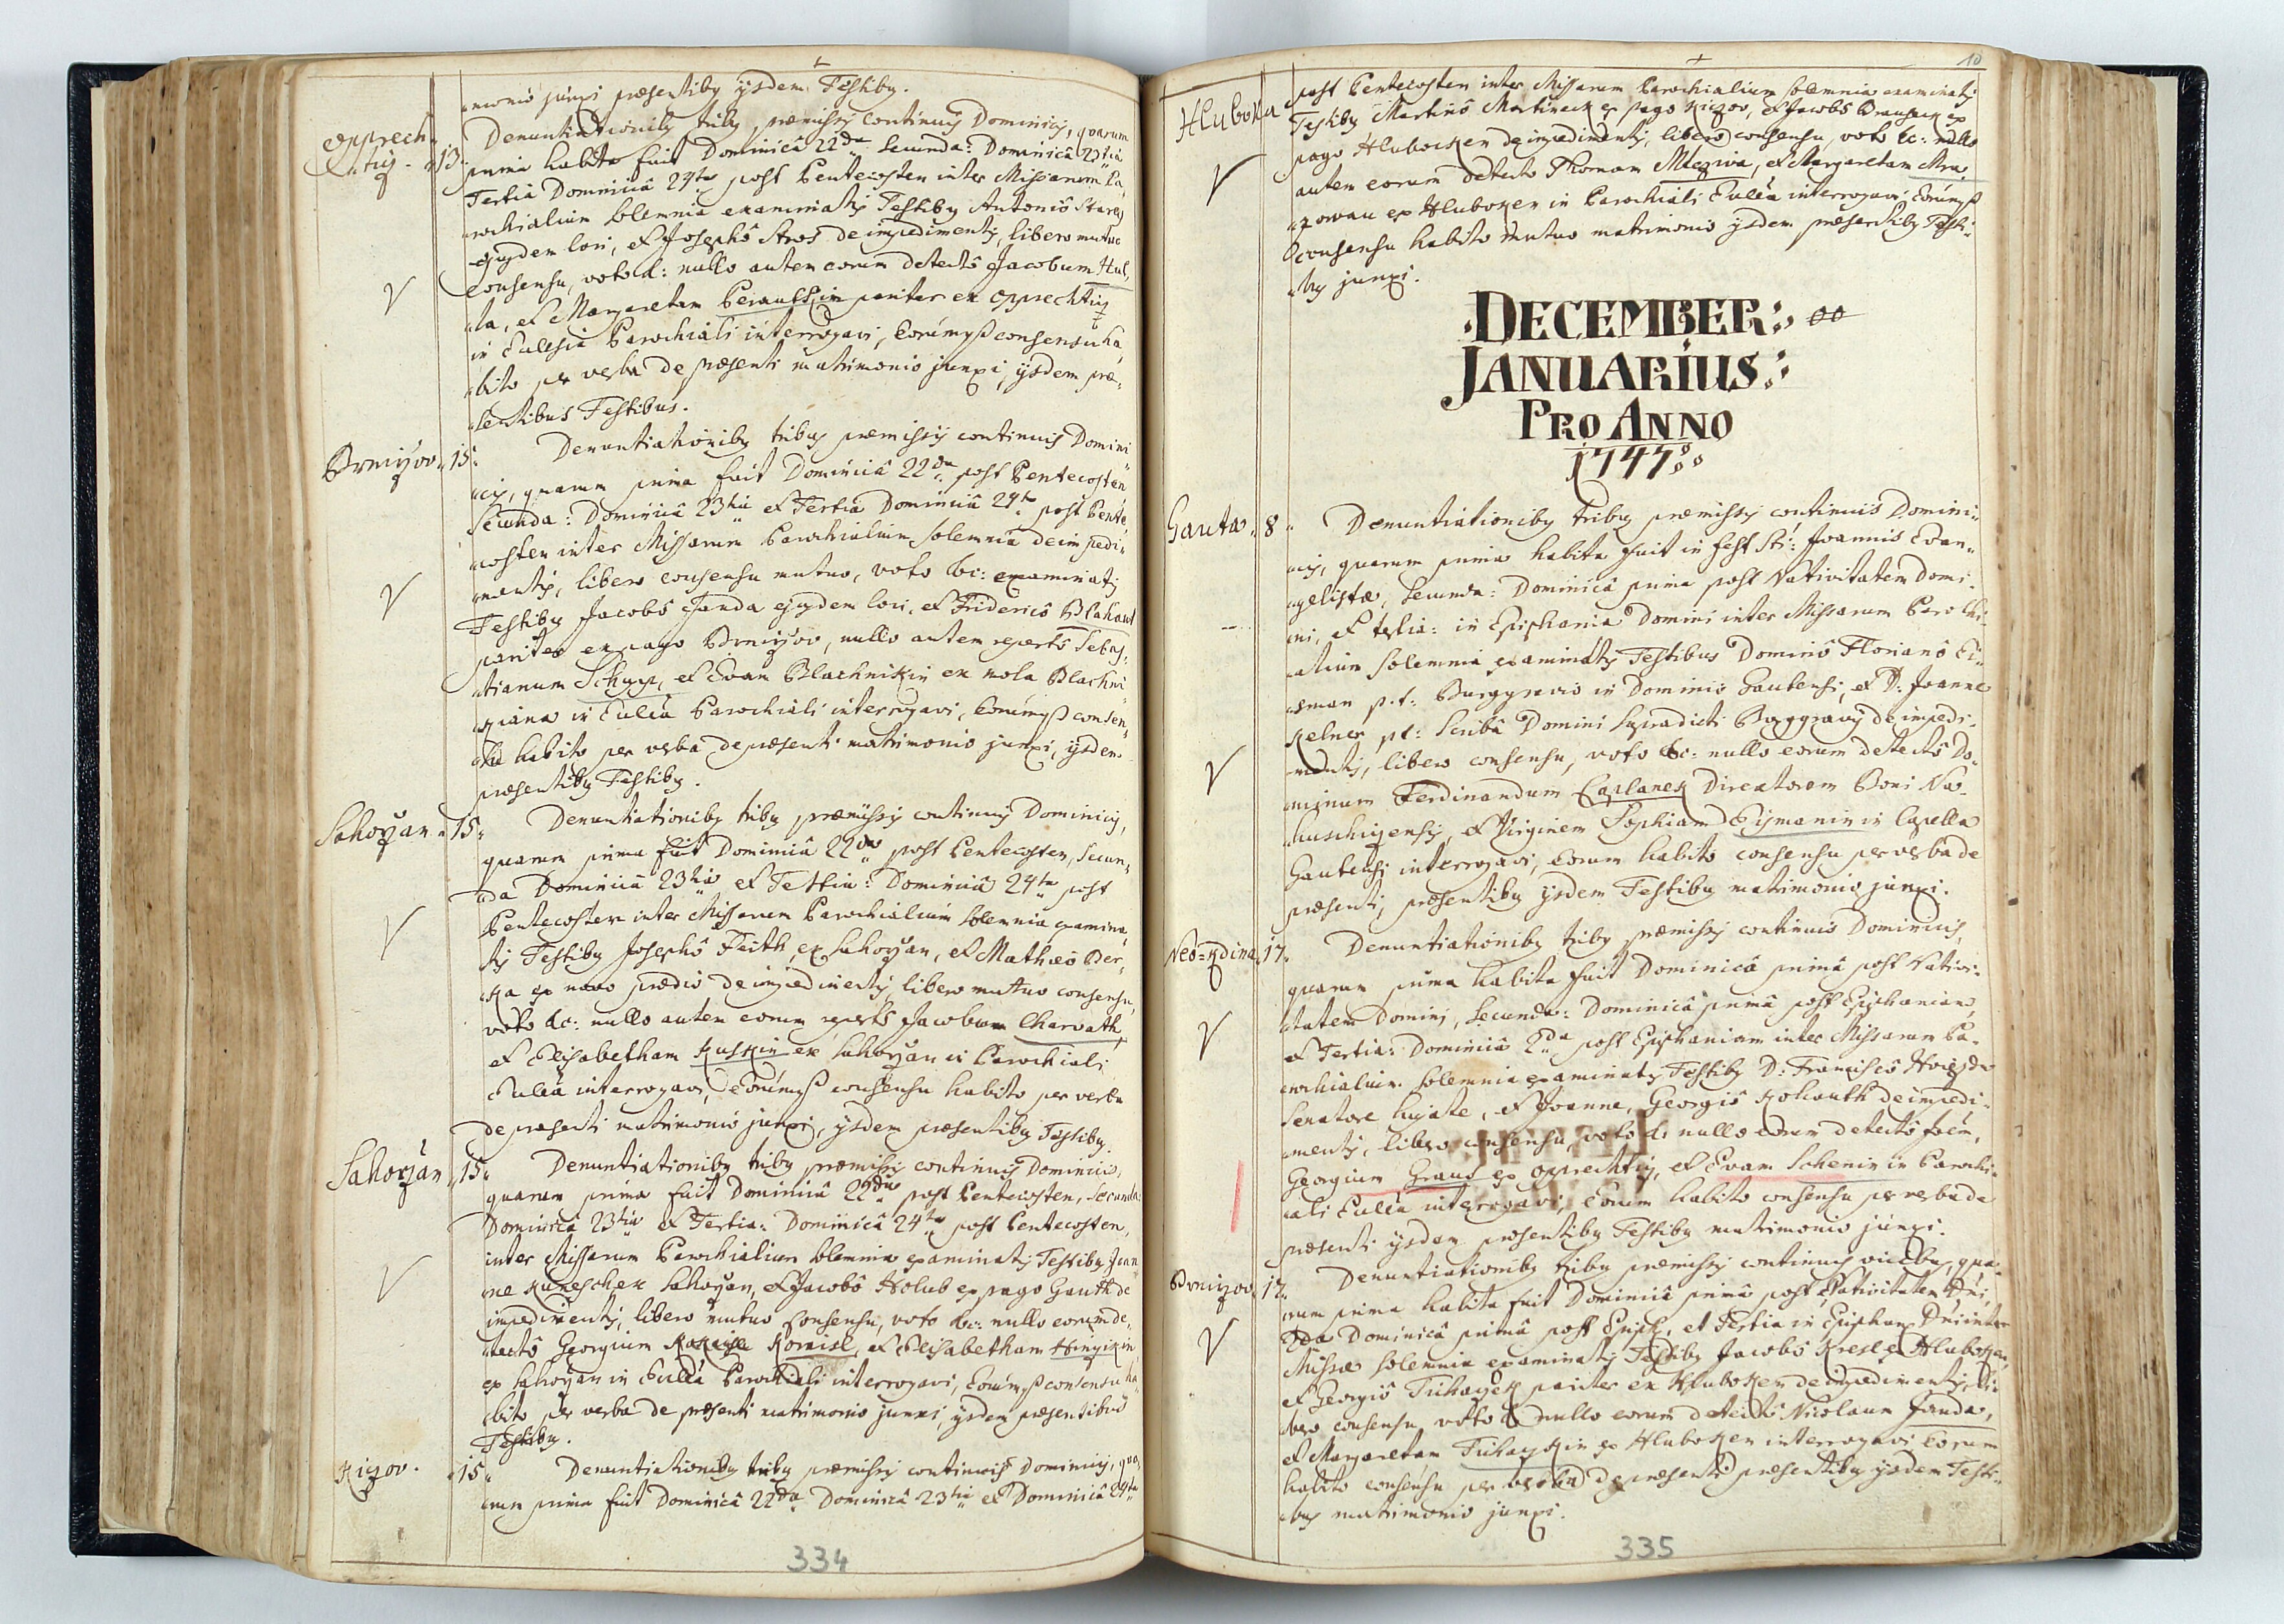 monio junxi præsentibg ÿsdem Testibg.
Opprech-
tig. 13. Denuntiationibg tribg præmissis continuis Dominicis, quarum
prima habita fuit Dominicâ 22da Secunda: Dominicâ 23tiâ
Tertia Dominicâ 24ta post Pentecosten inter Missarum Pa,
rochialium solemnia examinatis Testibg Antonio
ejgdem loci, et Josepho de impedimentis, libero mutuo
consensu, voto &: nullo autem eorum detecto Jacobum Hul,
la, et Margaretam pariter ex Opprechtig
in Ecclesia Parochiali interrogavi, Eorumqß consensu ha,
bito per verba de præsenti matrimonio junxi, ÿsdem præ,
sentibus Testibus.
15. Denuntiationibg tribus præmissis continuis Domini
cis, quarum prima fuit Dominicâ 22da post Pentecosten
Secunda: Dominicâ 23tiâ et Tertia Dominicâ 24ta post Pente,
costen inter Missarum Parochialium solemnia de impedi,
mentis, libero consensu mutuo, voto &c: examinatis
Testibg Jacobô Janda ejgdem loci, et Fridericô Blahaut
pariter ex pago nullo autem repertô Sebas,
tianum Schyp, et Evam Blachnikin ex mola Blachni
kiana in Ecclîa Parochiali interrogavi, Eorumqß consen,
su habito per verba de præsenti matrimonio junxi, ÿsdem
præsentibg Testibg.
Sahorzan. 15. Denuntiationibg tribg præmissis continuis Dominicis,
quarum prima fuit Dominicâ 22da post Pentecosten, Secun,
da Dominicâ 23tiâ et Tertia: Dominicâ 24ta post
Pentecosten inter Missarum Parochialium solemnia examina,
tis Testibg Josephô Feith, ex Sahorzan, et Mathæô Ber,
ka ex novo prædio de impedimentis libero mutuo consensu,
voto &c: nullo autem eorum repertô Jacobum Charvath,
et Elisabetham Kuskin ex Sahorzan in Parochiali
Ecclîa interrogavi, Eorumqß consensu habito per verba
de præsenti matrimonio junxi, ÿsdem præsentibg Testibg
Sahorzan 15. Denuntiationibg tribg præmissis continuis Dominicis,
quarum prima fuit Dominicâ 22da post Pentecosten, Secunda:
Dominicâ 23tiâ et Tertia: Dominicâ 24ta post Pentecosten,
inter Missarum Parochialium solemnia examinatis Testibg Joan
ne Kunescher Sahorzan, et Jacobô Holub ex pago Gauth de
impedimentis, libero mutuo consensu, voto &c: nullo eorum de,
tectô Georgium Kornisl, et Elisabetham
ex Sahorzan in Ecclîa Parochiali interrogavi, Eorumqß consensu ha
bito per verba de præsenti matrimonio junxi, ÿsdem præsentibus
Testibg.
Kizov. 15. Denuntiationibg tribg præmissis continuis Dominicis, qua,
rum prima fuit Dominicâ 22da Dominicâ 23tiâ et Dominicâ 24ta
334
10
Hluboka post Pentecosten inter Missarum Parochialium solemnia examinatis
Testibg Martinô Martineck ex pago Kizov, et Jacobô ex
pago Hluboken de impedimentis, libero consensu, voto &c: nullo
autem eorum detecto Thomam et Margaretam
ex Hluboken in Parochiali Ecclîa interrogavi, Eorumqß
consensu habito mutuo matrimonio ÿsdem præsentibg Testi-
bg junxi.
DECEMBER:
JANUARIUS:
PRO ANNO
1747:
Gauta. 8. Denuntiationibg tribg præmissis continuis Domini-
cis, quarum prima habita fuit in fest Sti: Joannis Evan-
gelistæ, Secunda: Dominicâ prima post Nativitatem Domi-
ni, et tertia: in Epiphania Domini inter Missarum Parochi-
alium solemnia examinatis Testibus Dominô Florianô Ei-
sman p.t: Burggravio in Dominio Gautensi, et D: Joanne
Kelner pt: Scribâ Domini supradicti Burggravÿ de impedi-
mentis, libero consensu, voto &c: nullo eorum detectô Do-
minum Ferdinandum Caplanek Directorem Boni
et Virginem Sophiam Eismanin in Capella
Gautensi interrogavi, Eorum habito consensu per verba de
præsenti, præsentibg ÿsdem Testibg matrimonio junxi.
Neo=Kdina 17. Denuntiationibg tribg præmissis continuis Dominicis,
quarum prima habita fuit Dominicâ primâ post Nativi-
tatem Domini, Secunda: Dominicâ primâ post Epiphaniam,
et Tertia: Dominicâ 2da post Epiphaniam inter Missarum Pa-
rochialium solemnia examinatis Testibg D: Franciscô
Senatore hujate, et Joanne, Georgiô Kohauth de impedi-
mentis, libero consensu, voto & nullo eorum detectô Joên,
Georgium Graus ex Opprechtig, et Evam Schenin in Parochi-
ali Ecclîa interrogavi, Eorum habito consensu per verba de
præsenti ÿsdem præsentibg Testibg matrimonio junxi.
17. Denuntiationibg tribg præmissis continuis vicibg, qua-
rum prima habita fuit Dominicâ primâ post Nativitatem Dñi,
2da Dominicâ primâ post Epiph, et Tertia in Epiphan Dñi inter
Missæ solemnia examinatis Testibg Jacobô Kresl ex Hluboken,
et Georgiô Tuhazek pariter ex Hluboken de impedimentis, li-
bero consensu, voto & nullo eorum detectô Nicolaum Janda,
et Margaretam Tuhazkin ex Hluboken interrogavi Eorum
habito consensu per verba de præsenti præsentibg ÿsdem Testi-
bg matrimonio junxi.
335